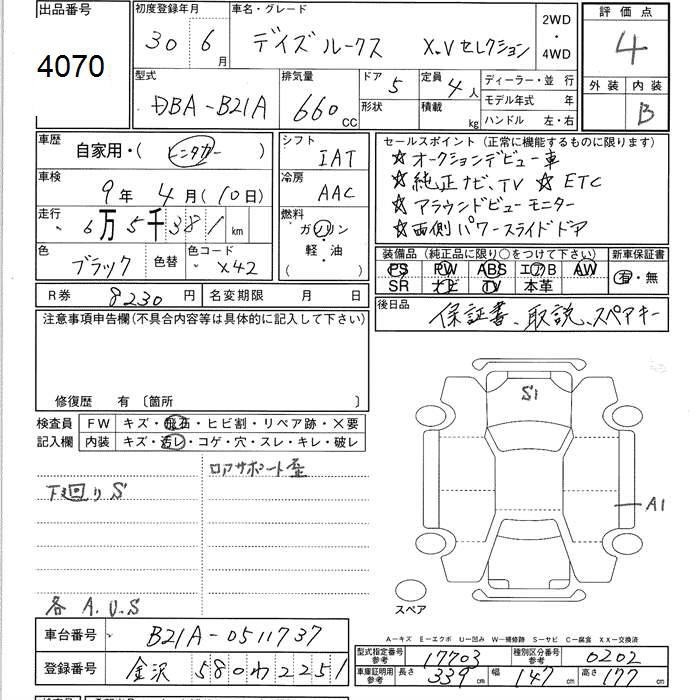 出品番号
4070
初度登録年月
30 6月
車名・グレード
デイズ ルークス X.Vセレクション
2WD・4WD
評価点
4
外装 内装
B
型式
DBA-B21A
排気量
660cc
ドア 5
形状
定員 4人
積載 kg
ディーラー・並行
モデル年式 年
ハンドル 左・右
車歴
自家用・(レンタカー)
車検
9年 4月(10日)
走行
6万5千381km
色 ブラック 色替
色コード X42
シフト
IAT
冷房
AAC
燃料
ガソリン
軽・油
R券 8230円
名変期限 月 日
セールスポイント(正常に機能するものに限ります)
☆オークションデビュー車
☆純正ナビ、TV ☆ETC
☆アラウンドビューモニター
☆両側パワースライドドア
装備品(純正品に限り○をつけて下さい)
PS PW ABS エアB AW
SR ナビ TV 本革
新車保証書
有・無
後日品
保証書、取説、スペアキー
注意事項申告欄(不具合内容等は具体的に記入して下さい)
修復歴 有〔箇所 〕
検査員記入欄
FW キズ・飛石・ヒビ割・リペア跡・×要
内装 キズ・汚レ・コゲ・穴・スレ・キレ・破レ
下廻りS
ロアサポート歪
各A.U.S
S1
A1
スペア
A-キズ E-エクボ U-凹み W-補修跡 S-サビ C-腐食 XX-交換済
車台番号 B21A-0511737
登録番号 金沢 580わ2251
型式指定番号参考 17703
種別区分番号参考 0202
車庫証明用参考 長さ 339cm 幅 147cm 高さ 177cm